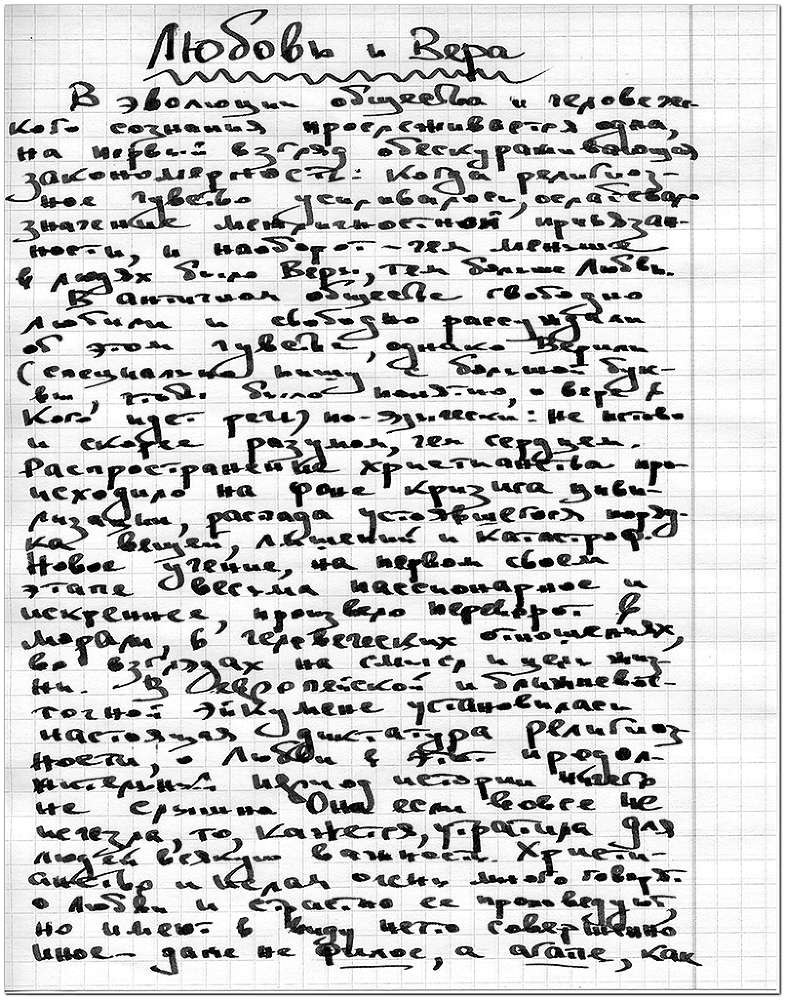 Любовь и Вера
В эволюции общества и человечес-
кого сознания прослеживается одна,
на первый взгляд обескураживающая
закономерность: Когда религиоз-
ное чувство усиливалось, ослабевало
значение межличностной привязан-
ности, и наоборот – чем меньше
в людях было Веры, тем больше Любви.
В античном обществе свободно
любили и свободно рассуждали
об этом чувстве, однако Верили
(специально пишу с большой бук-
вы, чтобы было понятно, о вере в
Кого идет речь) по-язычески: не истово
и скорее разумом, чем сердцем.
Распространение христианства про-
исходило на фоне кризиса циви-
лизации, распада устоявшегося поряд-
ка вещей, лишений и катастроф.
Новое учение, на первом своем
этапе весьма пассионарное и
искреннее, произвело переворот в
морали, в человеческих отношениях,
во взглядах на смысл и цель жиз-
ни. В европейской и ближневос-
точной эйкумене установилась
настоящая диктатура религиоз
ности, о Любви в этот продол-
жительный период истории ничего
не слышно Она если вовсе не
исчезла, то, кажется, утратила для
людей всякую важность. Христи-
анство и ислам очень много говорят
о любви и страстно ее проповедуют,
но имеют в виду нечто совершенно
иное – даже не филос, а агапе, как